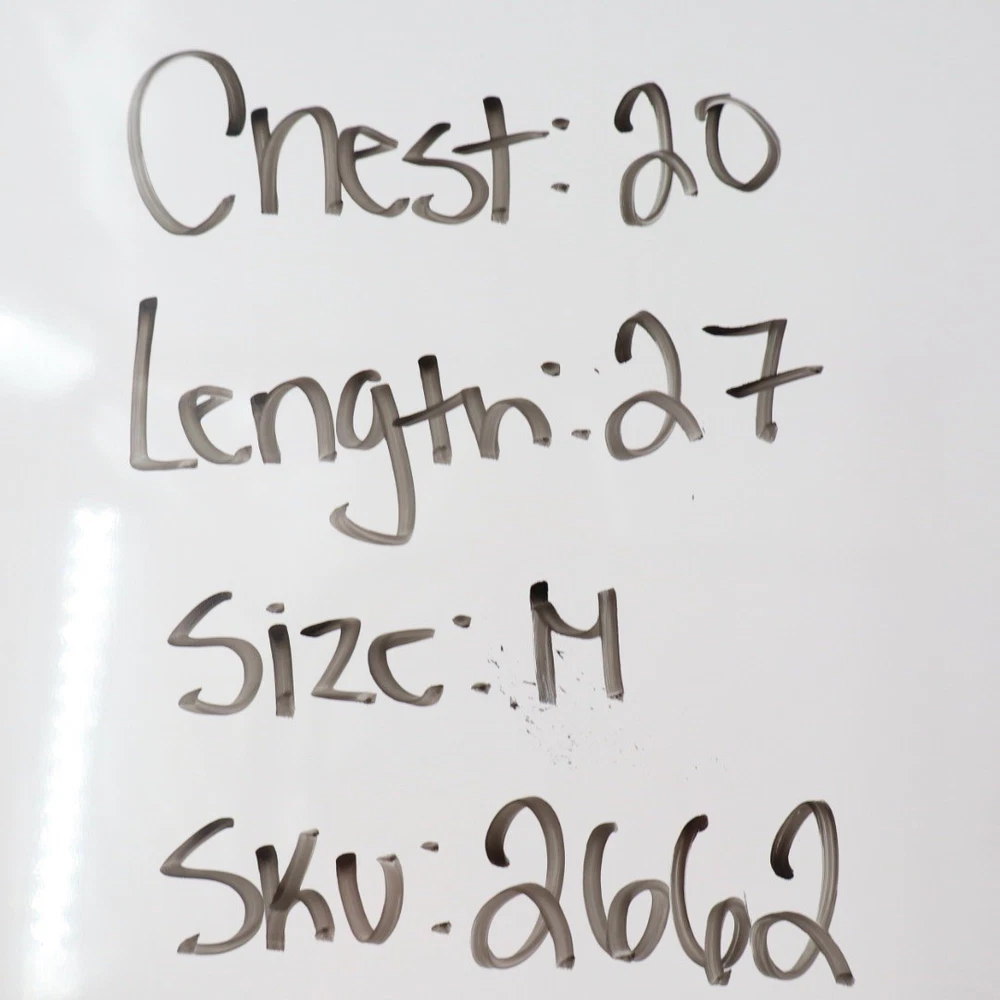 Chest: 20
Length: 27
Size: M
SKU: 2662